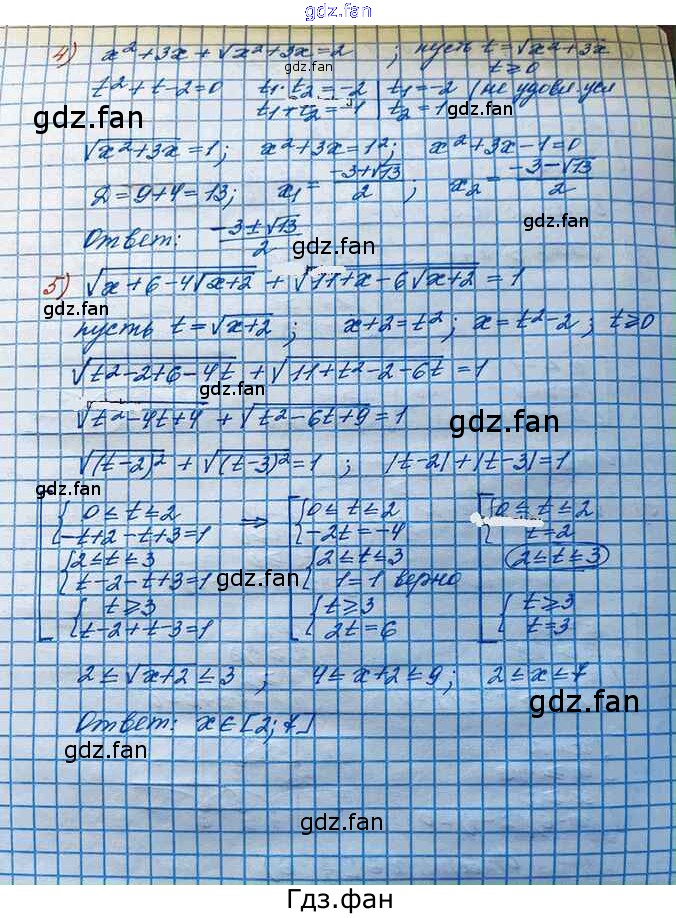 gdz.fan
4) x²+3x+√x²+3x=2 ; пусть t=√x²+3x
t≥0
gdz.fan
t²+t-2=0 t₁·t₂=-2 | t₁=-2 (не удовл. усл
gdz.fan t₁+t₂=-1 | t₂=1 gdz.fan
√x²+3x=1; x²+3x=1²; x²+3x-1=0
D=9+4=13; x₁=(-3+√13)/2 ; x₂=(-3-√13)/2
gdz.fan
Ответ: (-3±√13)/2
gdz.fan
5) √x+6-4√x+2 + √11+x-6√x+2 = 1
gdz.fan
пусть t=√x+2 ; x+2=t²; x=t²-2 ; t≥0
√t²-2+6-4t + √11+t²-2-6t = 1
gdz.fan
√t²-4t+4 + √t²-6t+9 = 1 gdz.fan
√(t-2)² + √(t-3)² = 1 ; |t-2|+|t-3|=1
gdz.fan
[ { 0≤t≤2 ⇒ [ { 0≤t≤2 [ { 0≤t≤2
-t+2-t+3=1 -2t=-4 t=2
{ 2≤t≤3 { 2≤t≤3 2≤t≤3
t-2-t+3=1 gdz.fan 1=1 верно
{ t≥3 { t≥3 { t≥3
t-2+t-3=1 2t=6 t=3
2≤√x+2≤3 ; 4≤x+2≤9; 2≤x≤7
gdz.fan
Ответ: x∈[2;7]
gdz.fan
gdz.fan
Гдз.фан